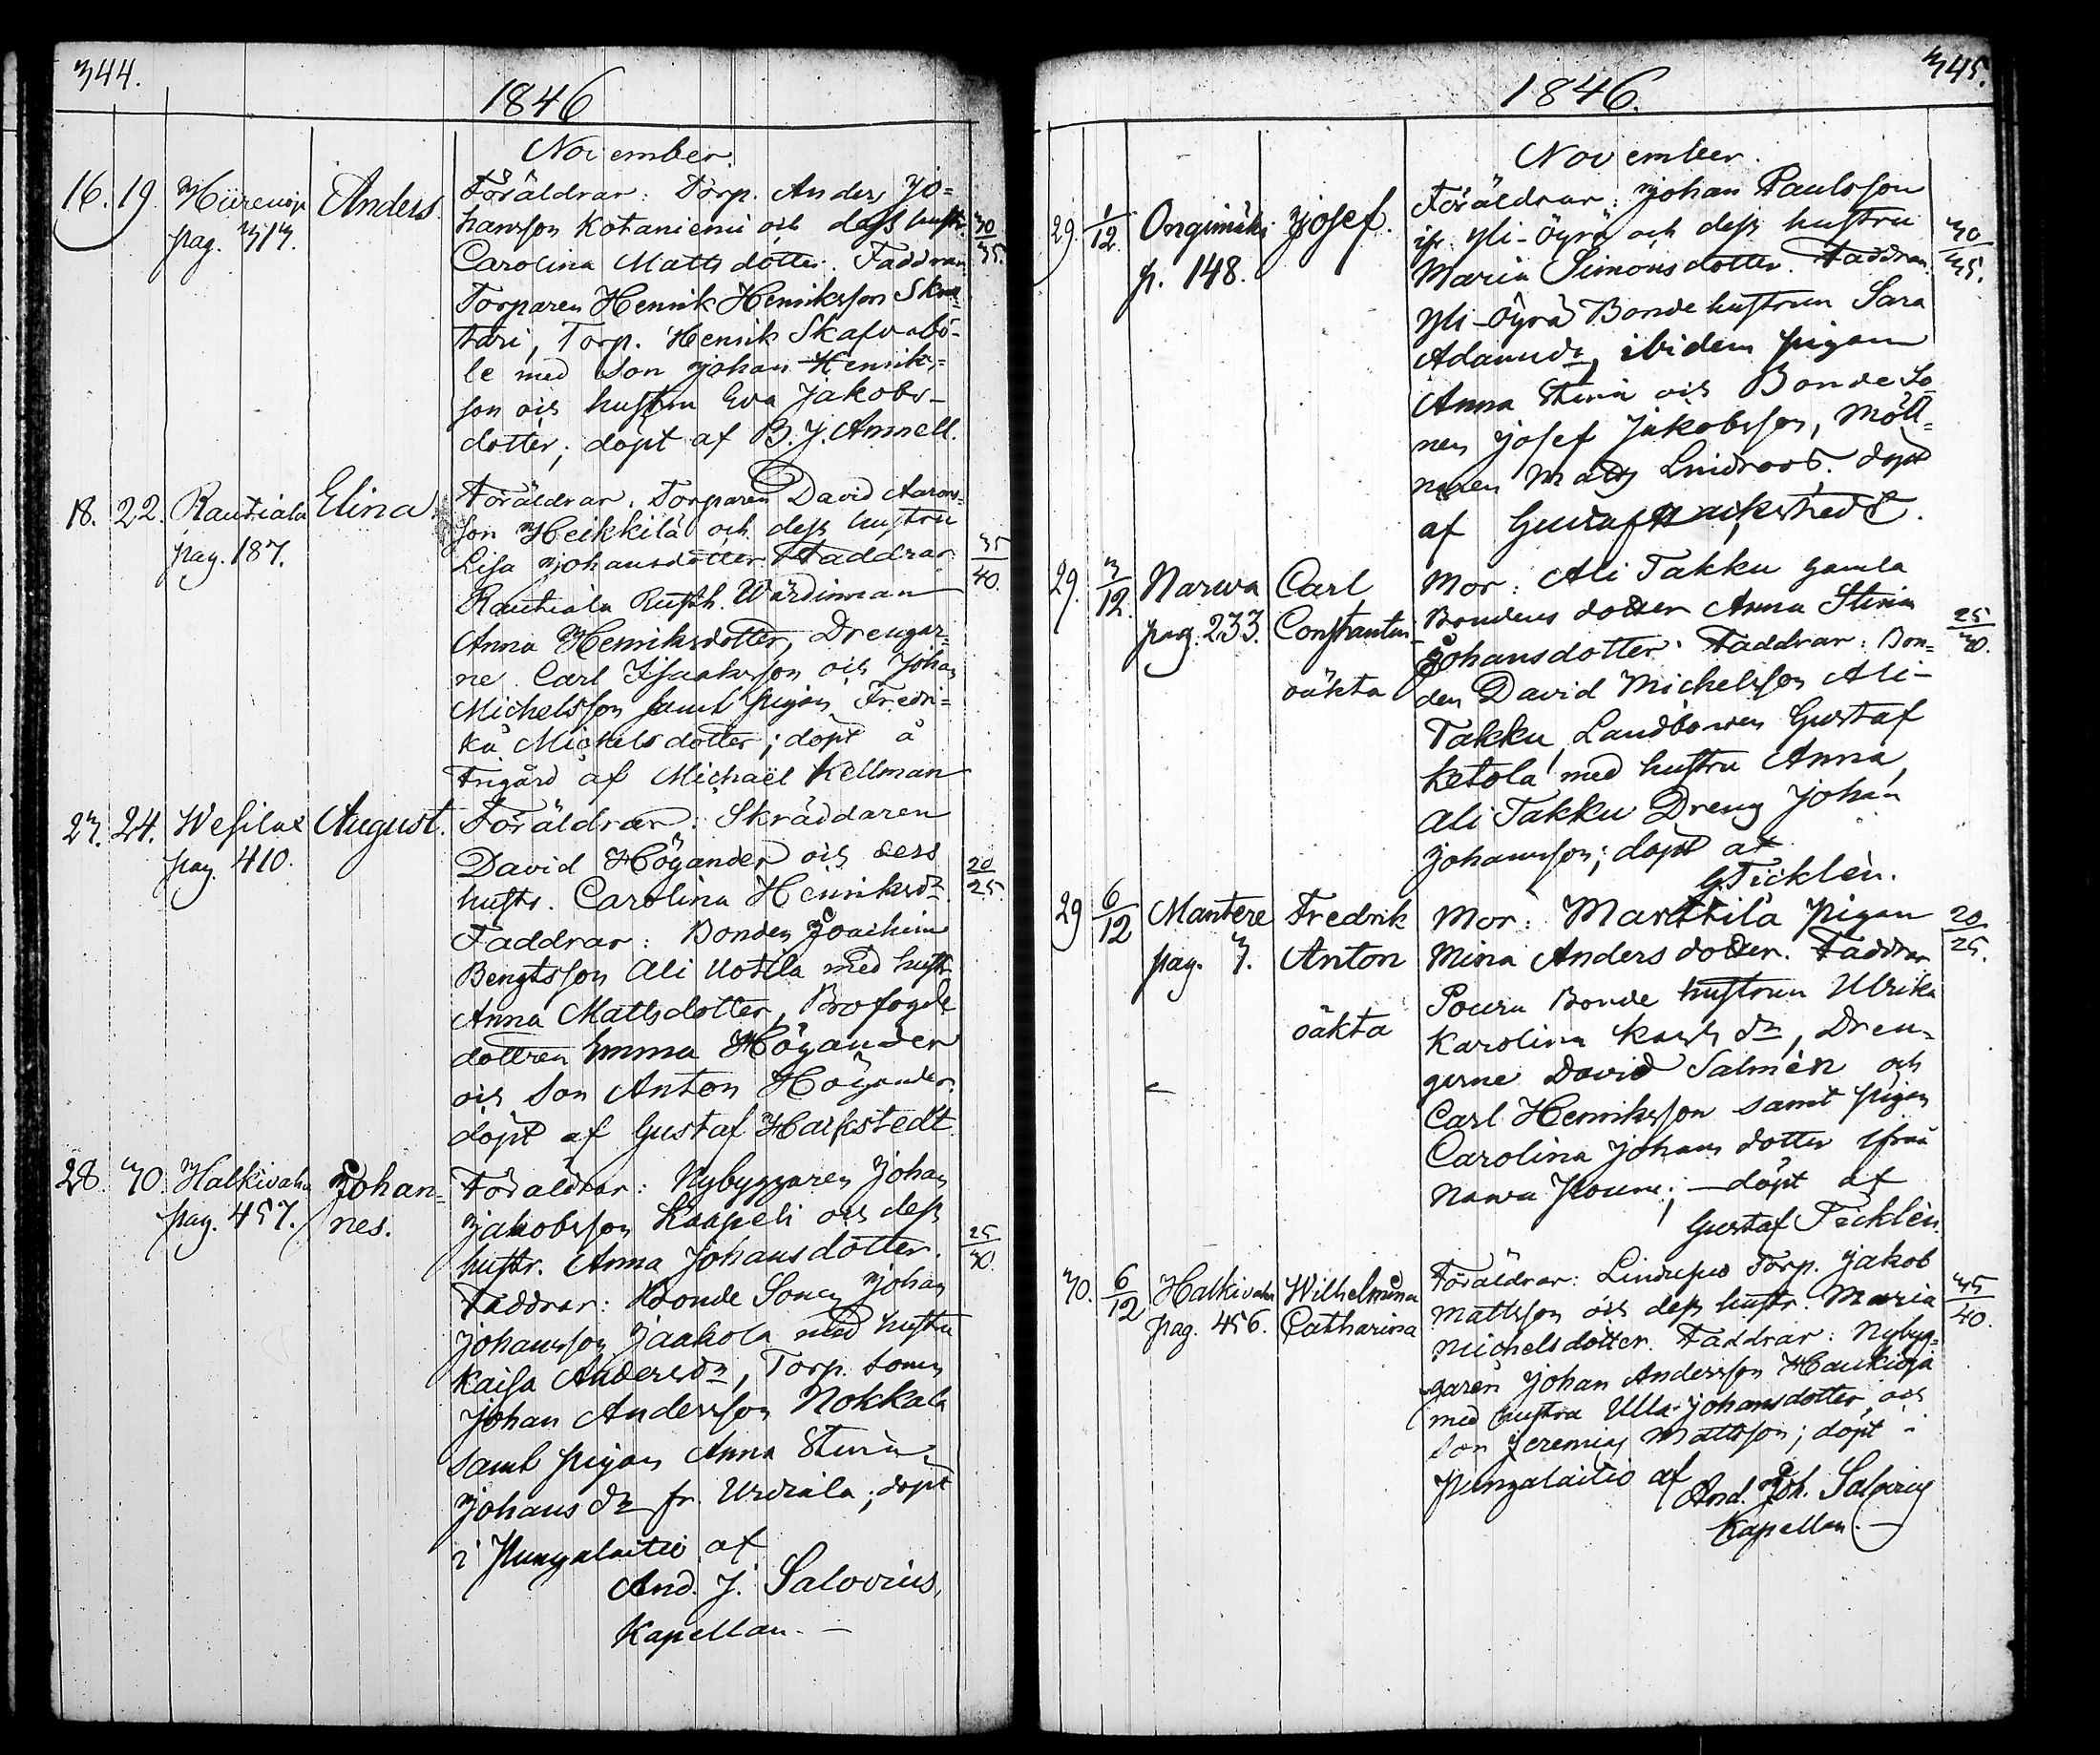 344.
1846
November.
16. 19. Hiirenoja Anders. Föräldrar: Torp. Anders Jo=
pag. 313. hansson Kotaniemi och dess hustr. 30/35.
Carolina Matts dotter. Faddrar
Torparen Henrik Henriksson
Torp. Henrik Skafvabö-
le med Son Johan Henriks=
son och hustru Eva Jakobs-
dotter; döpt af B. J. Amnell.
18. 22. Rautiala Elina. Föräldrar: Torparen David Aarons=
pag. 187. son Heikkilä och dess hustru
Lisa Johansdotter. Faddrar: 35/40.
Rautiala Rusth. Wärdinnan
Anna Henriksdotter, Drengar=
ne Carl Isaaksson och Johan
Michelsson samt pigan Fredri=
ka Michelsdotter; döpt å
Frigård af Michaël Kellman
23. 24. Wesilax August. Föräldrar: Skräddaren
pag. 410. David Högander och dess 20/25.
hustr. Carolina Henriksdr.
Faddrar: Bonden Joachim
Bengtsson Ali Uotila med hustr.
Anna Mattsdotter, Brofogde
dottren Emma Högander
och Son Anton Högander.
döpt af Gustaf Hackstedt.
28. 30. Halkivaha Johan= Föräldrar: Nybyggaren Johan
pag. 457. nes. Jakobsson Kaapeli och dess 25/30.
hustr. Anna Johansdotter.
Faddrar: Bonde Sonen Johan
Johansson Jaakola med hustru
Kaisa Andersdr, Torp. sonen
Johan Andersson Nokkala
samt pigan Anna Stina
Johansdr fr. Urdiala; döpt
i Pungalaitio af
And. J. Salovius,
Kapellan. —
345.
1846.
November.
29. 1/12. Ongimäki Josef. Föräldrar: Johan Paulsson
p. 148. ifr. Yli-Öyrä och dess hustru 30/35.
Maria Simonsdotter. Faddrar.
Yli-Öyrä Bonde hustrun Sara
Adamsdr, ibidem pigan
Anna Stina och Bonde So=
nen Josef Jakobsson, Möll=
naren Mats Lindroos. döpt
af Gustaf Hackstedt.
29. 3/12. Narwa Carl Mor: Ali Takku gamla
pag. 233. Constantin Bondens dotter Anna Stina 25/30.
oäkta Johansdotter. Faddrar: Bon=
den David Michelsson Ali-
Takku, Landbonden Gustaf
Ketola med hustru Anna,
Ali Takku Dreng Johan
Johansson; döpt af
G. Ticklén.
29 6/12 Mantere Fredrik Mor: Marttila pigan 20/25.
pag. 3. Anton Mina Andersdotter. Faddrar
Pouru Bonde hustrun Ulrika
oäkta Karolina dr, Dren=
garne David Salmén och
Carl Henriksson samt pigan
Carolina Johansdotter ifrån
Narva Pouru; — döpt af
Gustaf Ticklén.
30. 6/12 Halkivaha Wilhelmina Föräldrar: Lindupus Torp. Jakob 35/40.
pag. 456. Catharina Mattsson och dess hustr. Maria
Michelsdotter. Faddrar: Nybyg=
garen Johan Andersson Haukioja
med hustru Ulla Johansdotter och
Son Jeremias Mattsson; döpt i
Pungalaitio af And. Joh. Salovius
Kapellan. —